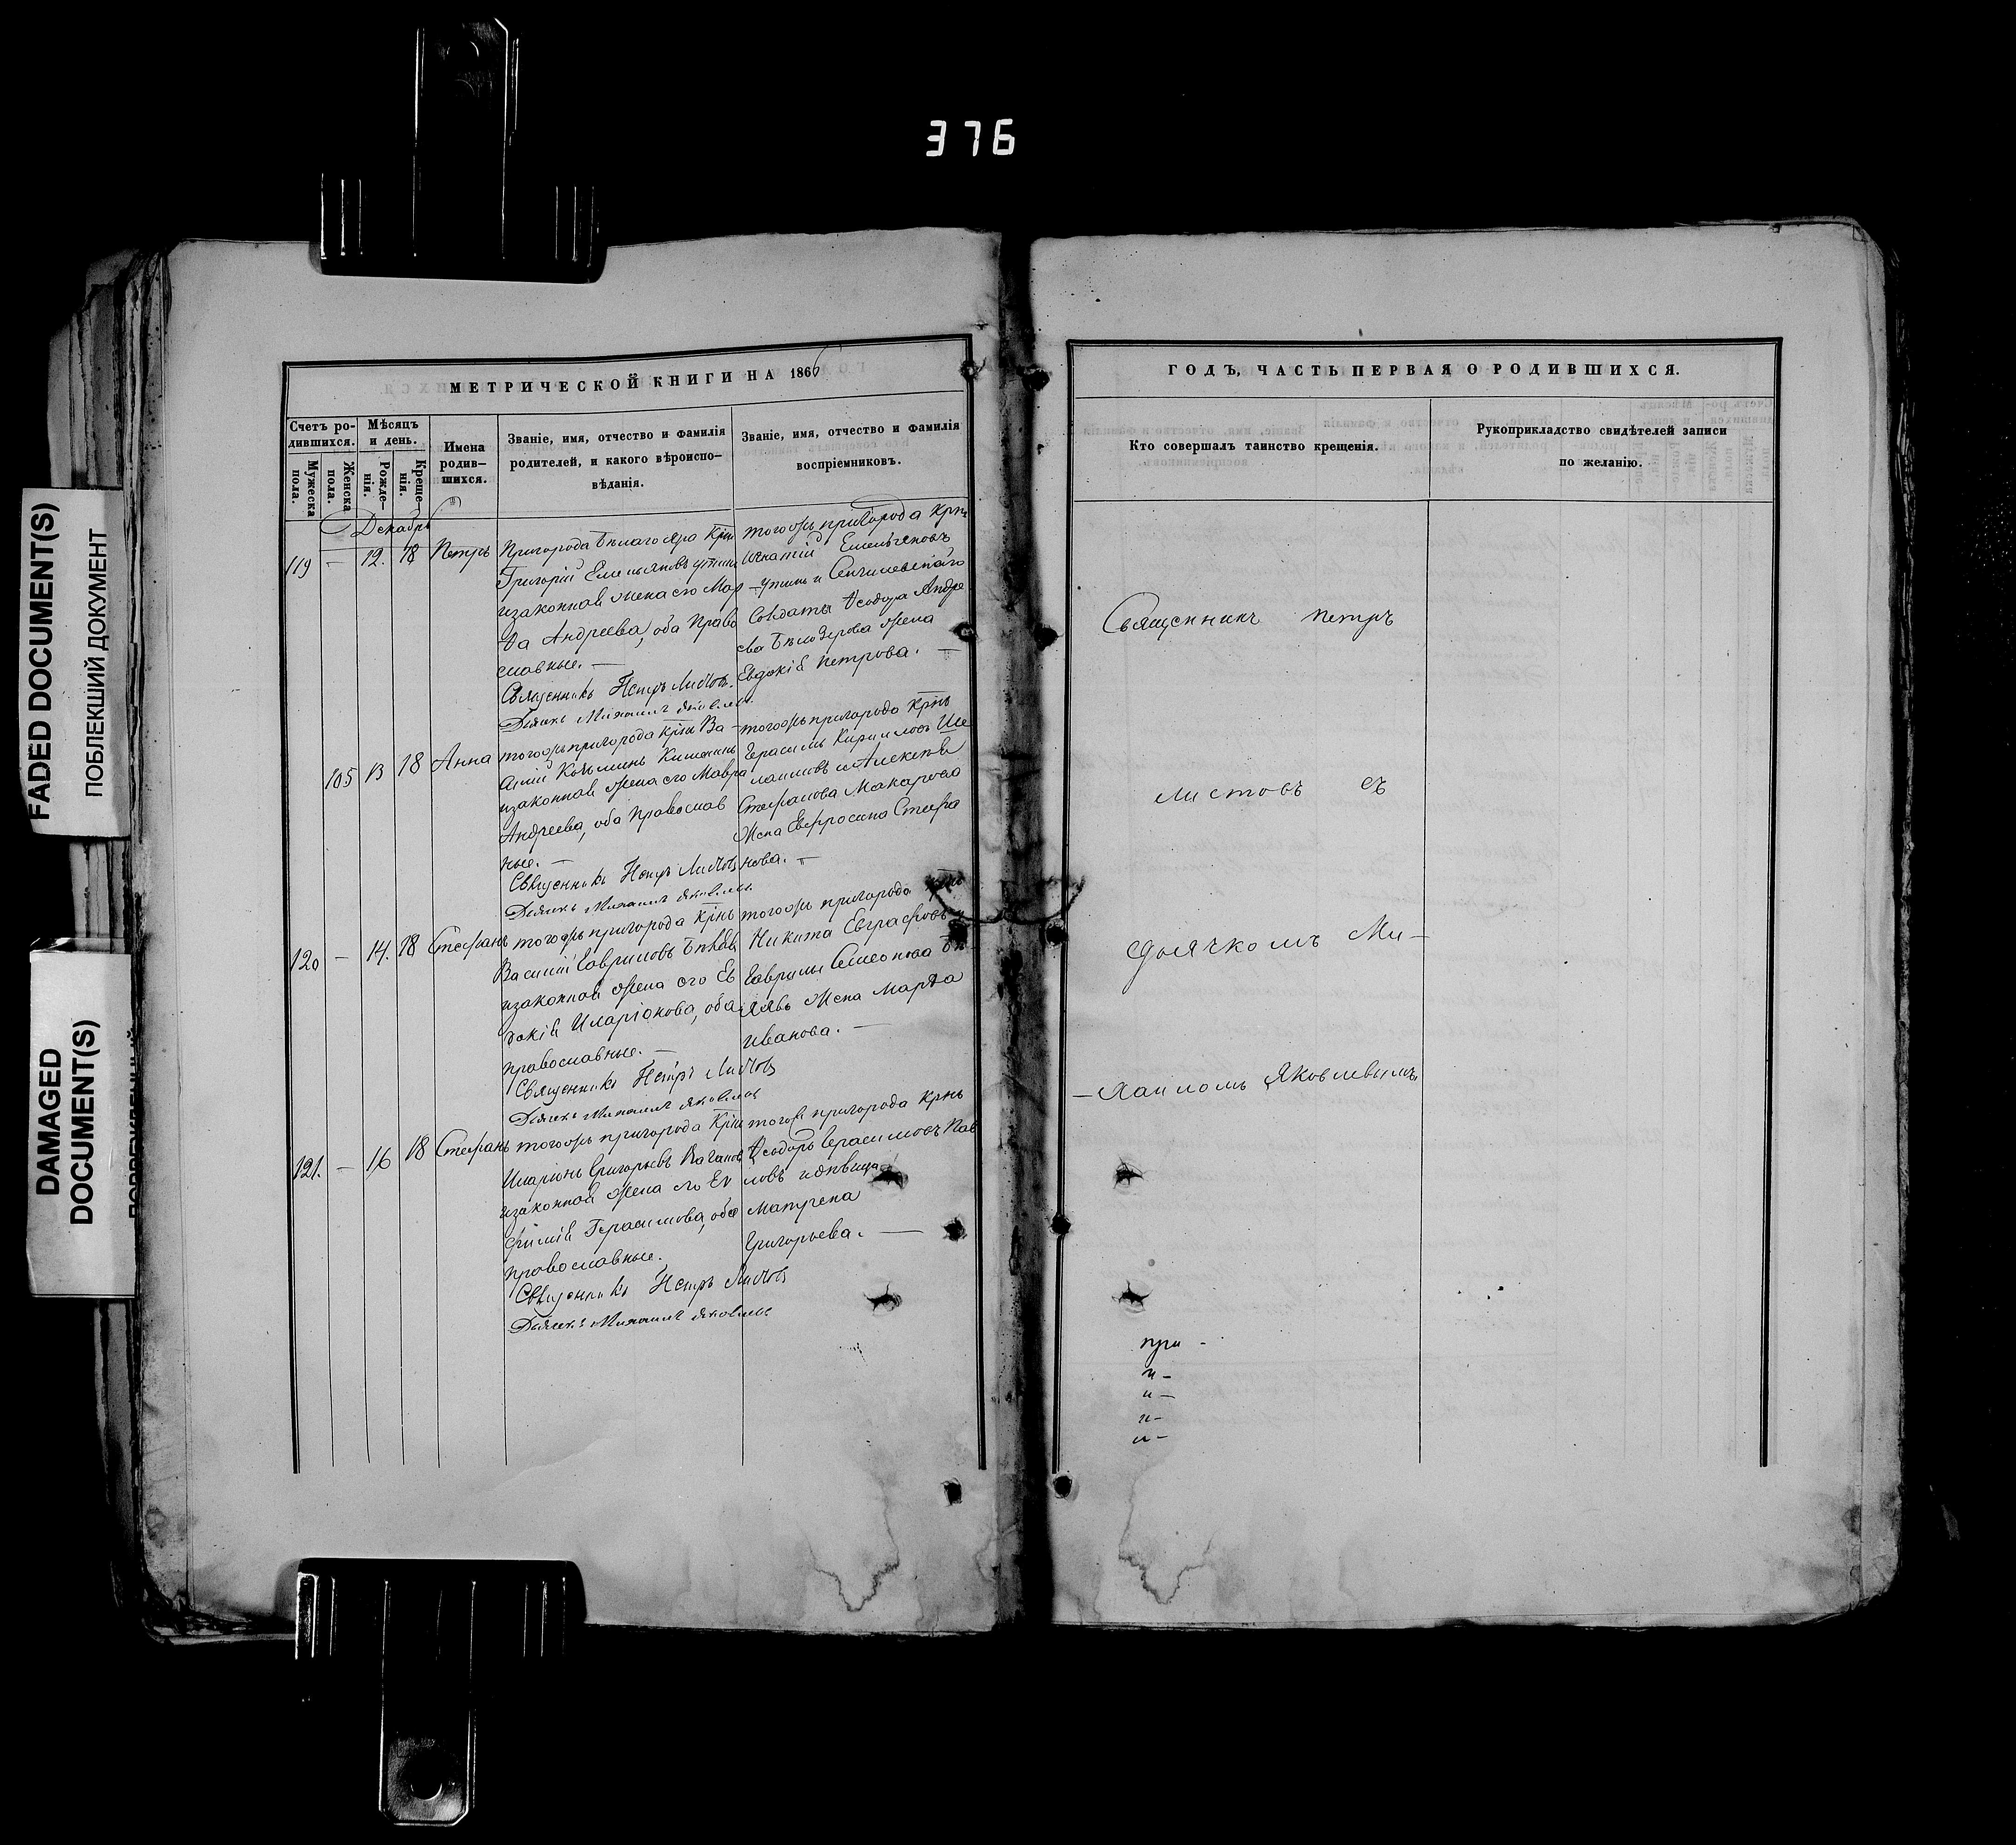 376
FADED DOCUMENT(S)
ПОБЛЕКШИЙ ДОКУМЕНТ
DAMAGED
DOCUMENT(S)
МЕТРИЧЕСКОЙ КНИГИ НА 1866
Счетъ ро-
дившихся.
Мужеска
пола.
Женска
пола.
Мѣсяцъ
и день.
Рожде-
нія.
Креще-
нія.
Имена
родив-
шихся.
Званіе, имя, отчество и фамилія
родителей, и какого вѣроиспо-
вѣданія.
Званіе, имя, отчество и фамилія
воспріемниковъ.
Декабрь
119 — 12. 18 Петръ
Пригорода Бѣлаго яра Крнъ
Григорій Емельяновъ
и законная жена его Мар
ѳа Андреева, оба Право
славные. —
Священникъ Петръ Листовъ.
Дьячекъ Михаилъ Яковлевъ
тогожъ пригорода Крнъ
Игнатій Емельяновъ
и Сенгилевскаго
Солдата Ѳеодора Андре
ева Бѣлозерова жена
Евдокія Петрова. —
105 13 18 Анна
тогожъ пригорода Крнъ Ва-
силій Козьминъ
и законная жена его Мавра
Андреева, оба Православ
ные. —
Священникъ Петръ Листовъ
Дьячекъ Михаилъ Яковлевъ
тогожъ пригорода Крнъ
Герасимъ Кириловъ
и Алексѣя
Стефанова Макарова
жена Евфросина Стефа
нова. —
120 — 14. 18 Стефанъ
тогожъ пригорода Крнъ
Василій Гавриловъ
и законная жена его Ев
докія Иларіонова, оба
православные. —
Священникъ Петръ Листовъ
Дьячекъ Михаилъ Яковлевъ
тогожъ пригорода Крнъ
Никита Евграфовъ и
Гаврилы Семенова
жена Марѳа
Иванова. —
121. — 16 18 Стефанъ
тогожъ пригорода Крнъ
Иларіонъ Григорьевъ
и законная жена его Ев
фимія Герасимова, оба
православные.
Священникъ Петръ Листовъ
Дьячекъ Михаилъ Яковлевъ
тогожъ пригорода Крнъ
Ѳеодоръ Герасимовъ Пав
ловъ и дѣвица
Матрена
Григорьева. —
ГОДЪ, ЧАСТЬ ПЕРВАЯ О РОДИВШИХСЯ.
Кто совершалъ таинство крещенія.
Рукоприкладство свидѣтелей записи
по желанію.
Священникъ Петръ
Листовъ съ
дьячкомъ Ми-
-хаиломъ Яковлевымъ
при -
и -
и -
и -
и -